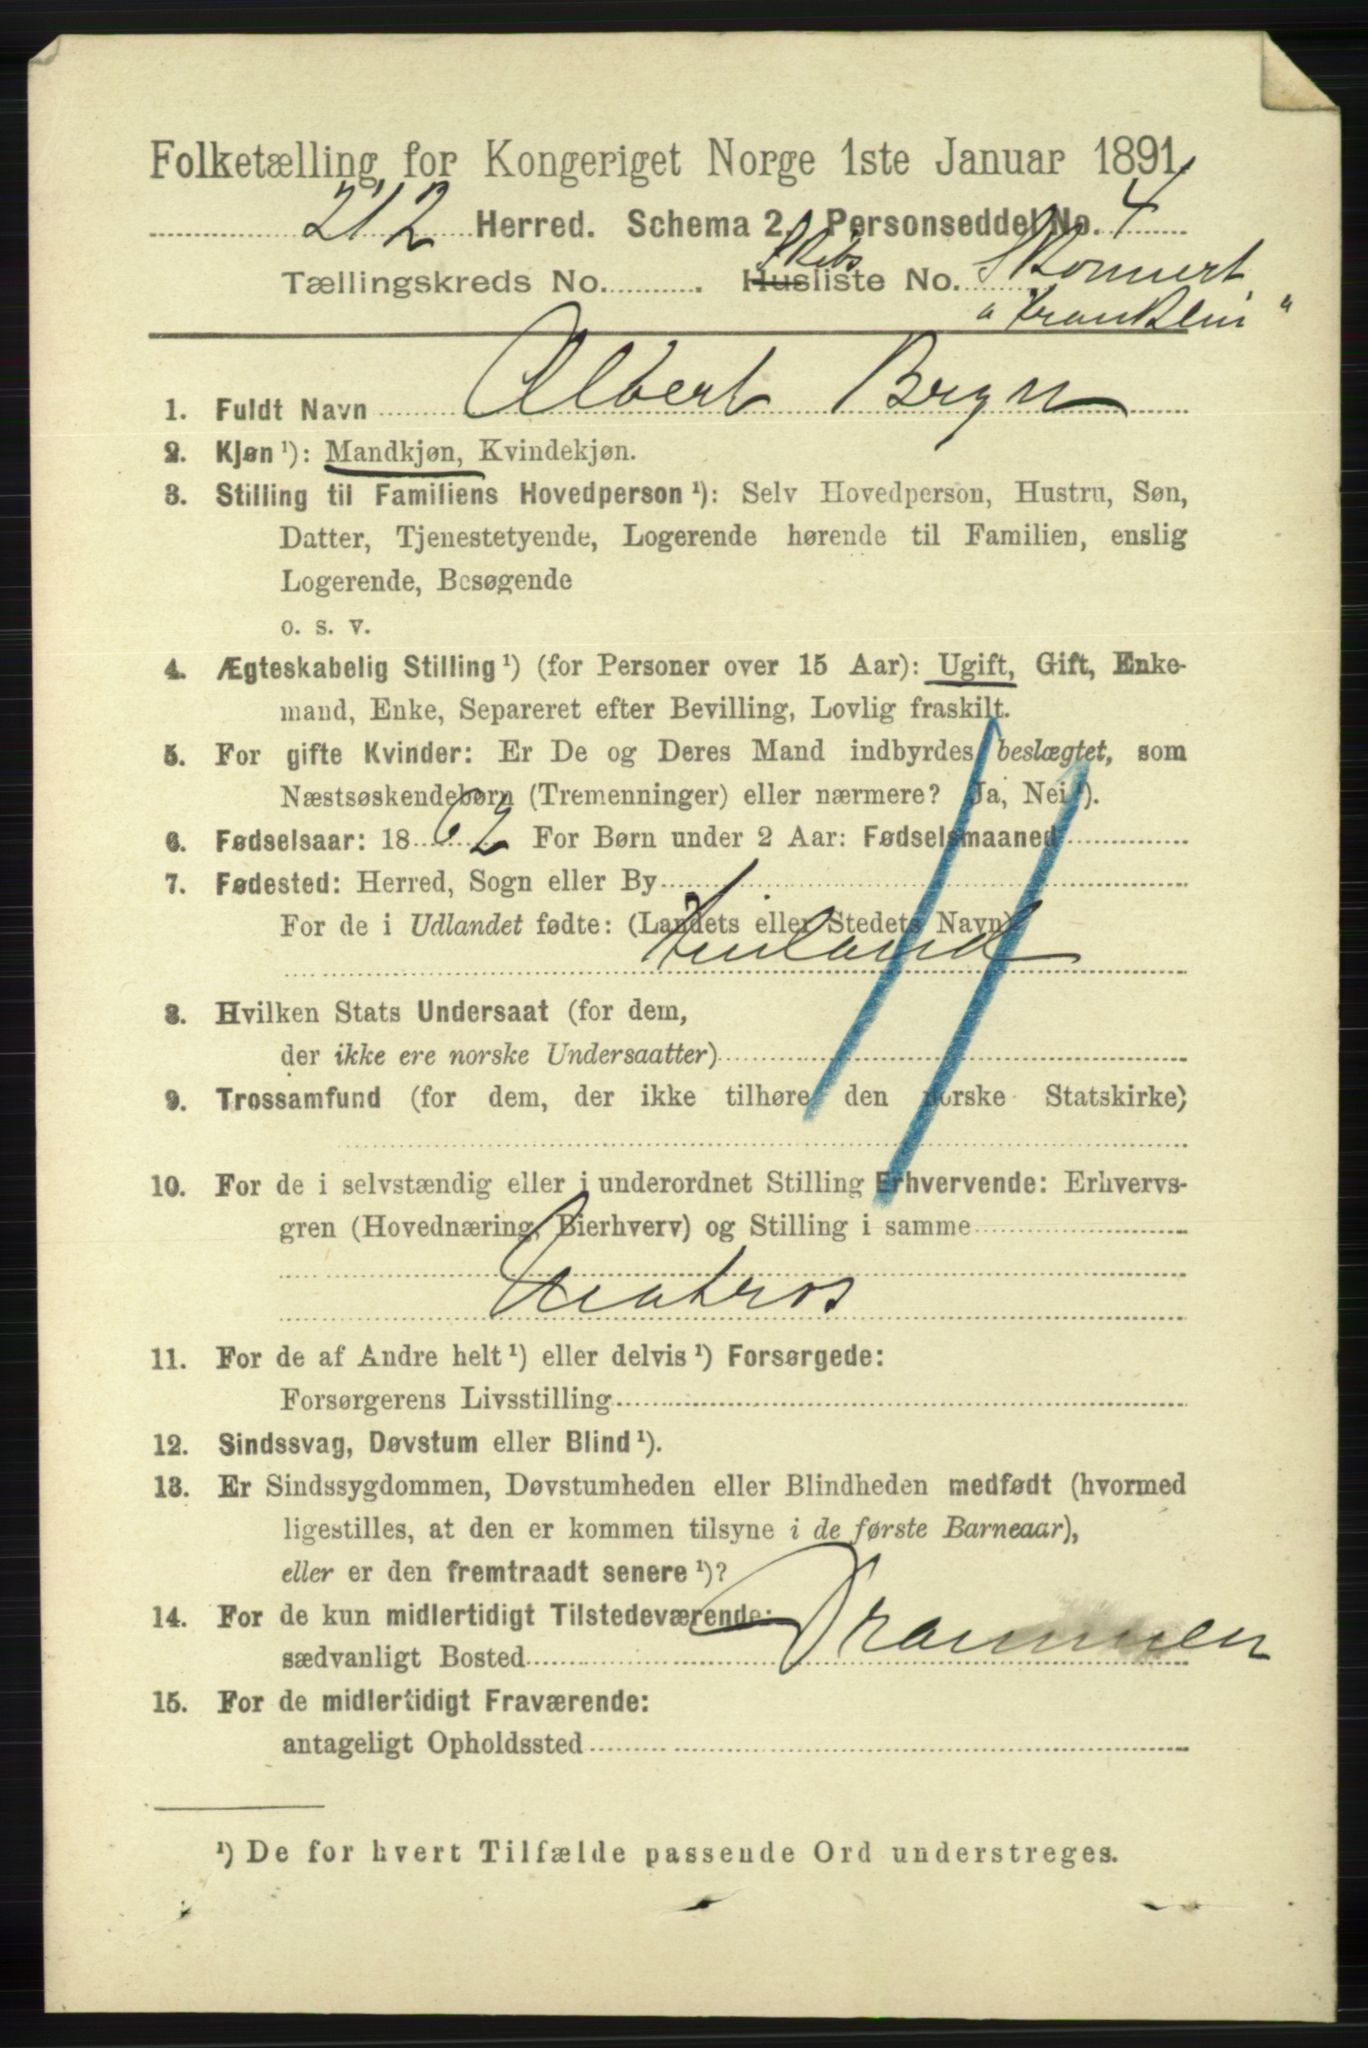 Folketælling for Kongeriget Norge 1ste Januar 1891.
212 Herred. Schema 2. Personseddel No. 4
Tællingskreds No. . Skibs Husliste No. Skonnert
„Franklin“
1. Fuldt Navn Albert Bryn
2. Kjøn ¹): Mandkjøn, Kvindekjøn.
3. Stilling til Familiens Hovedperson ¹): Selv Hovedperson, Hustru, Søn,
Datter, Tjenestetyende, Logerende hørende til Familien, enslig
Logerende, Besøgende
o. s. v.
4. Ægteskabelig Stilling ¹) (for Personer over 15 Aar): Ugift, Gift, Enke-
mand, Enke, Separeret efter Bevilling, Lovlig fraskilt.
5. For gifte Kvinder: Er De og Deres Mand indbyrdes beslægtet, som
Næstsøskendebørn (Tremenninger) eller nærmere? Ja, Nei ¹).
6. Fødselsaar: 1862 For Børn under 2 Aar: Fødselsmaaned
7. Fødested: Herred, Sogn eller By
For de i Udlandet fødte: (Landets eller Stedets Navn)
Finland
8. Hvilken Stats Undersaat (for dem,
der ikke ere norske Undersaatter)
9. Trossamfund (for dem, der ikke tilhøre den norske Statskirke)
10. For de i selvstændig eller i underordnet Stilling Erhvervende: Erhvervs-
gren (Hovednæring, Bierhverv) og Stilling i samme
Matros
11. For de af Andre helt ¹) eller delvis ¹) Forsørgede:
Forsørgerens Livsstilling
12. Sindssvag, Døvstum eller Blind ¹).
13. Er Sindssygdommen, Døvstumheden eller Blindheden medfødt (hvormed
ligestilles, at den er kommen tilsyne i de første Barneaar),
eller er den fremtraadt senere ¹)?
14. For de kun midlertidigt Tilstedeværende:
sædvanligt Bosted Drammen
15. For de midlertidigt Fraværende:
antageligt Opholdssted
¹) De for hvert Tilfælde passende Ord understreges.